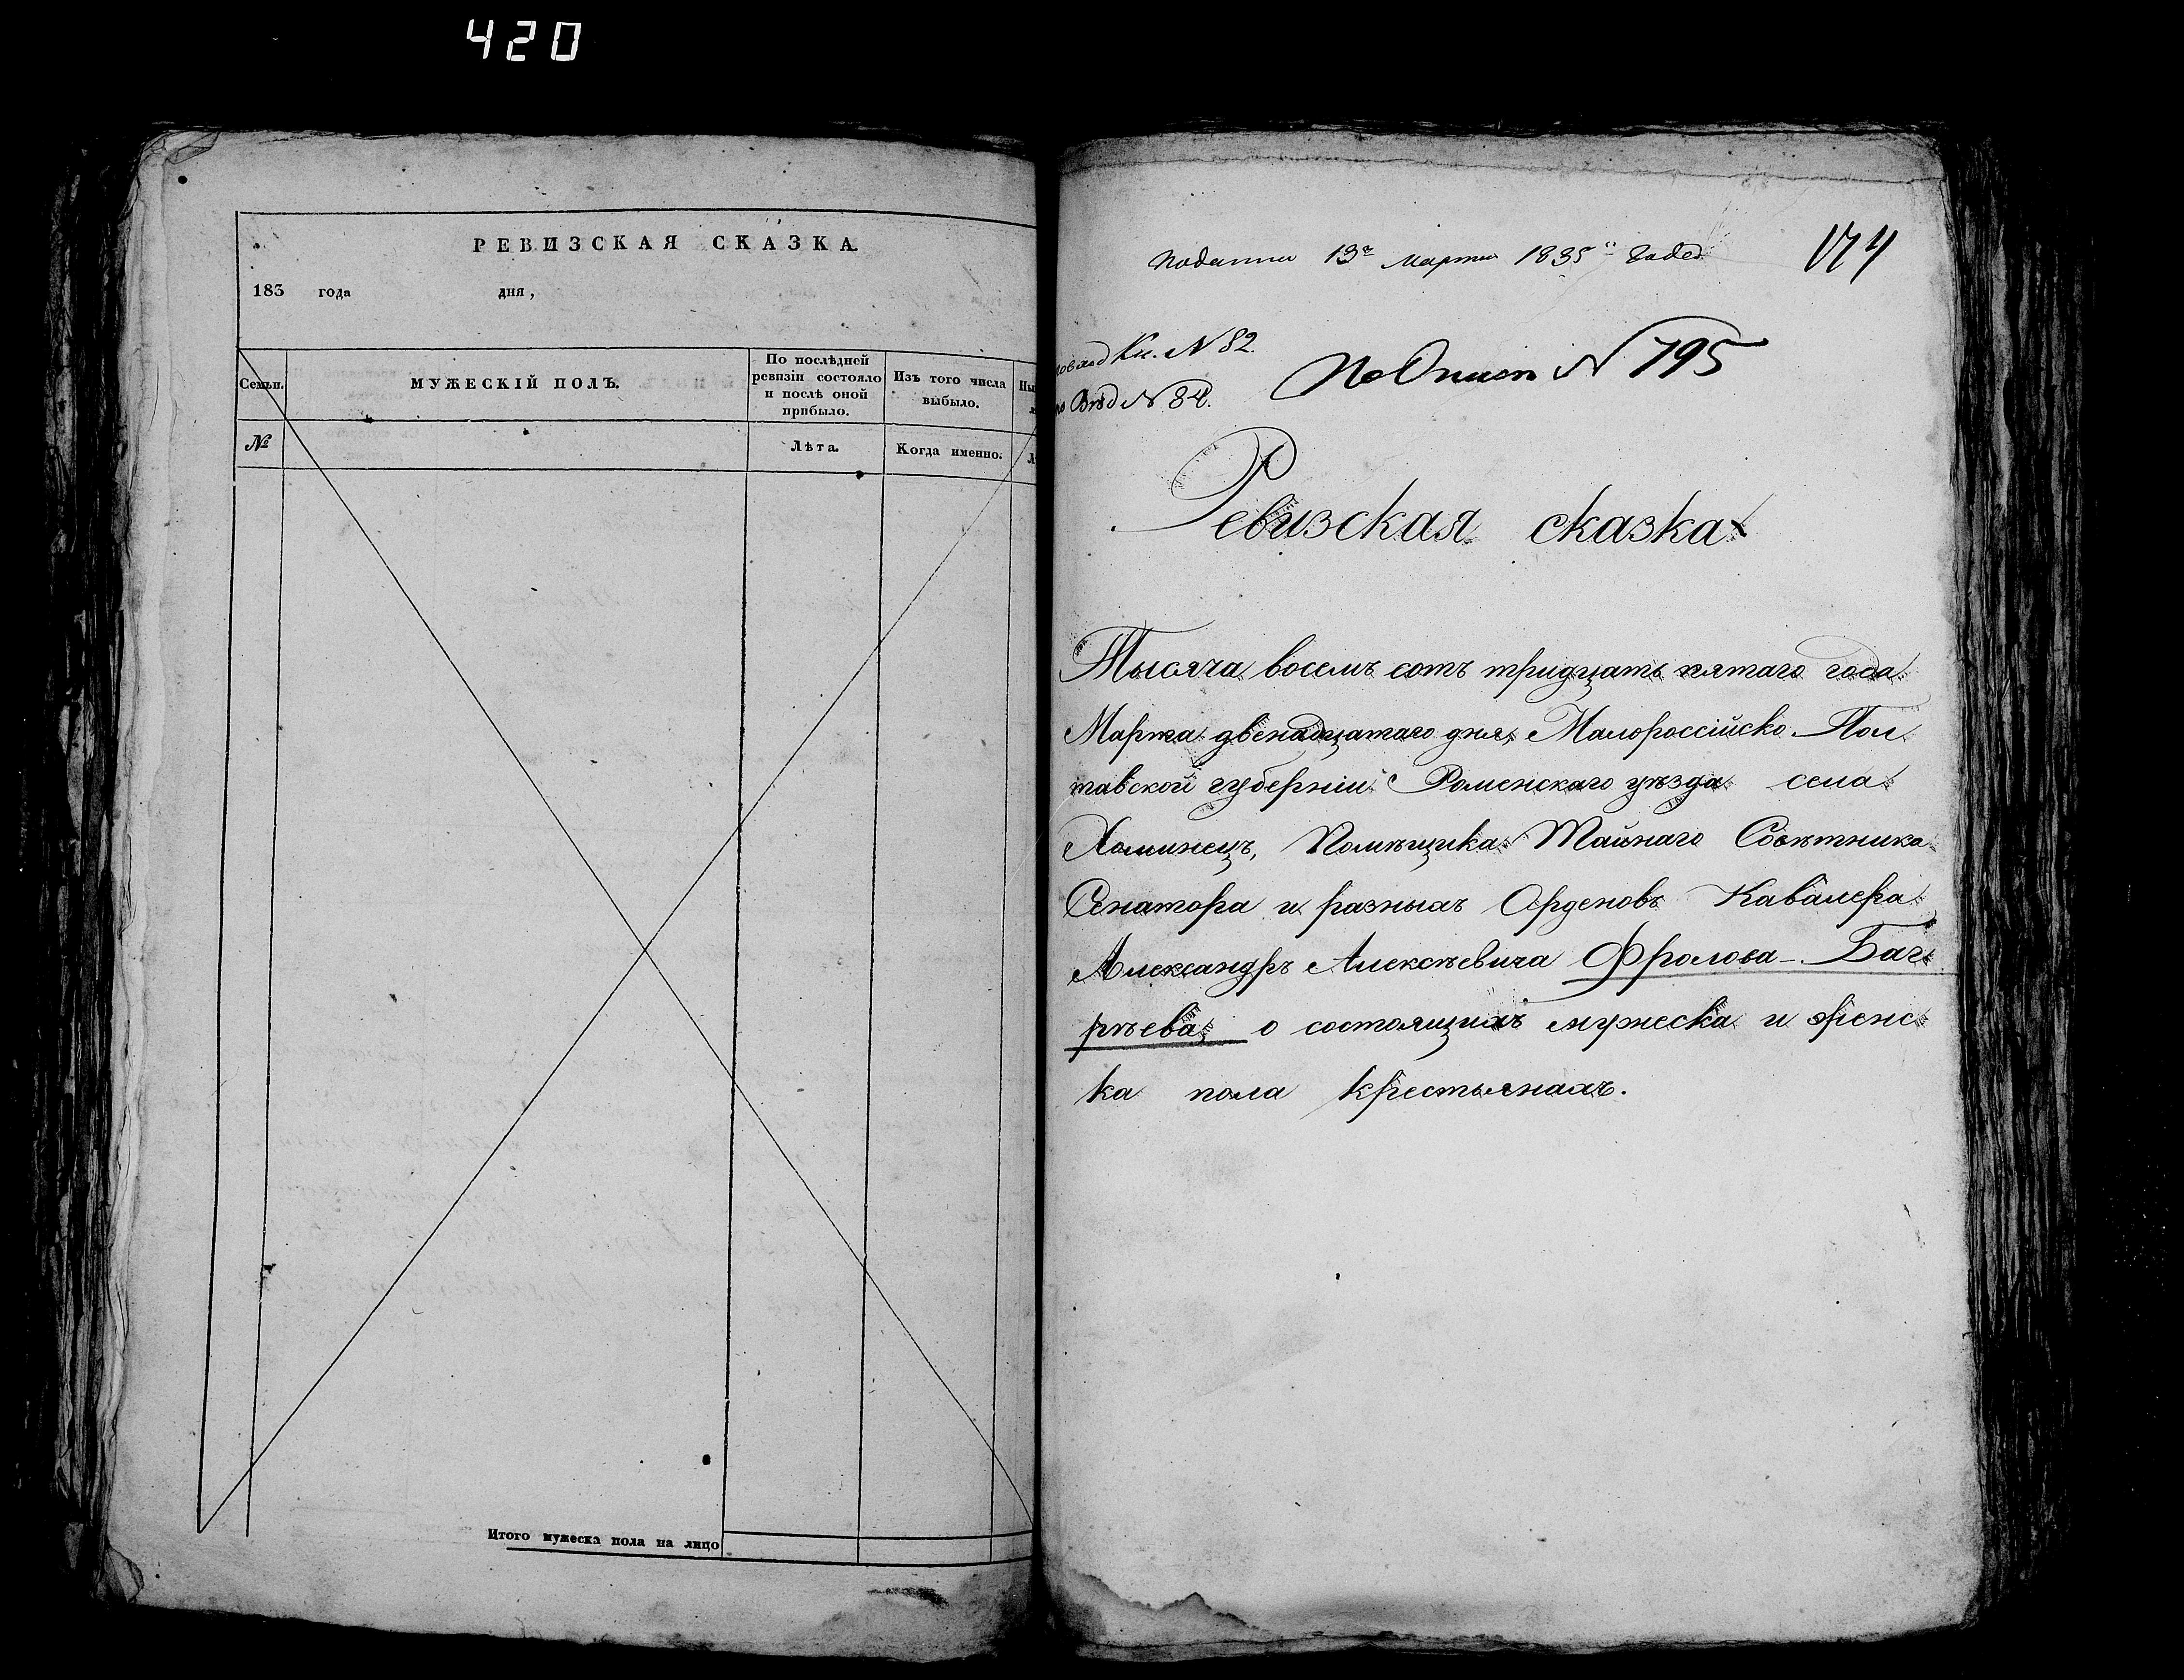 420
РЕВИЗСКАЯ СКАЗКА
183 года дня,
Семьи.
МУЖЕСКІЙ ПОЛЪ.
По послѣдней ревизіи состояло и послѣ оной прибыло.
Изъ того числа выбыло.
№
Лѣта.
Когда именно.
Итого мужеска пола на лицо
Подана 13го Марта 1835го Года
174
Кн. N 82.
Вѣд N 84.
N 795
Ревизская сказка
Тысяча восемъ сотъ тридцать пятаго года
Марта двенадцатаго дня, Малороссійско Пол
тавской губерніи Роменскаго уѣзда села
Хоминецъ, Помѣщика Тайнаго Совѣтника
Сенатора и разныхъ Орденовъ Кавалера
Александръ Алексѣевича Фролова-Баг
рѣева о состоящихъ мужеска и женс
ка пола крестьянахъ.